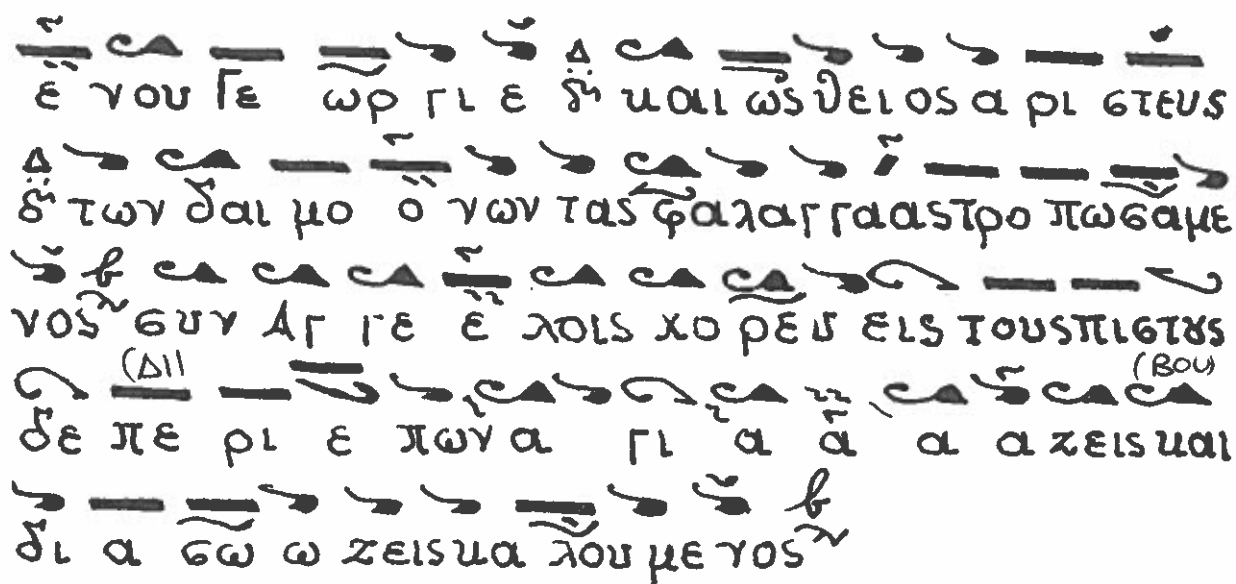 ε νου Γε ωρ γι ε Δ δι και ως θειος α ρι στευς
Δ δι των δαι μο ο νων τας φα λαγ γα ας τρο πω σα με
νος β συν Αγ γε ε λοις χο ρευ εις τους πιστȣς
(ΔΙ)
δε πε ρι ε πων α γι α α α α ζεις και
(ΒΟΥ)
δι α σω ω ζεις κα λου με νος β